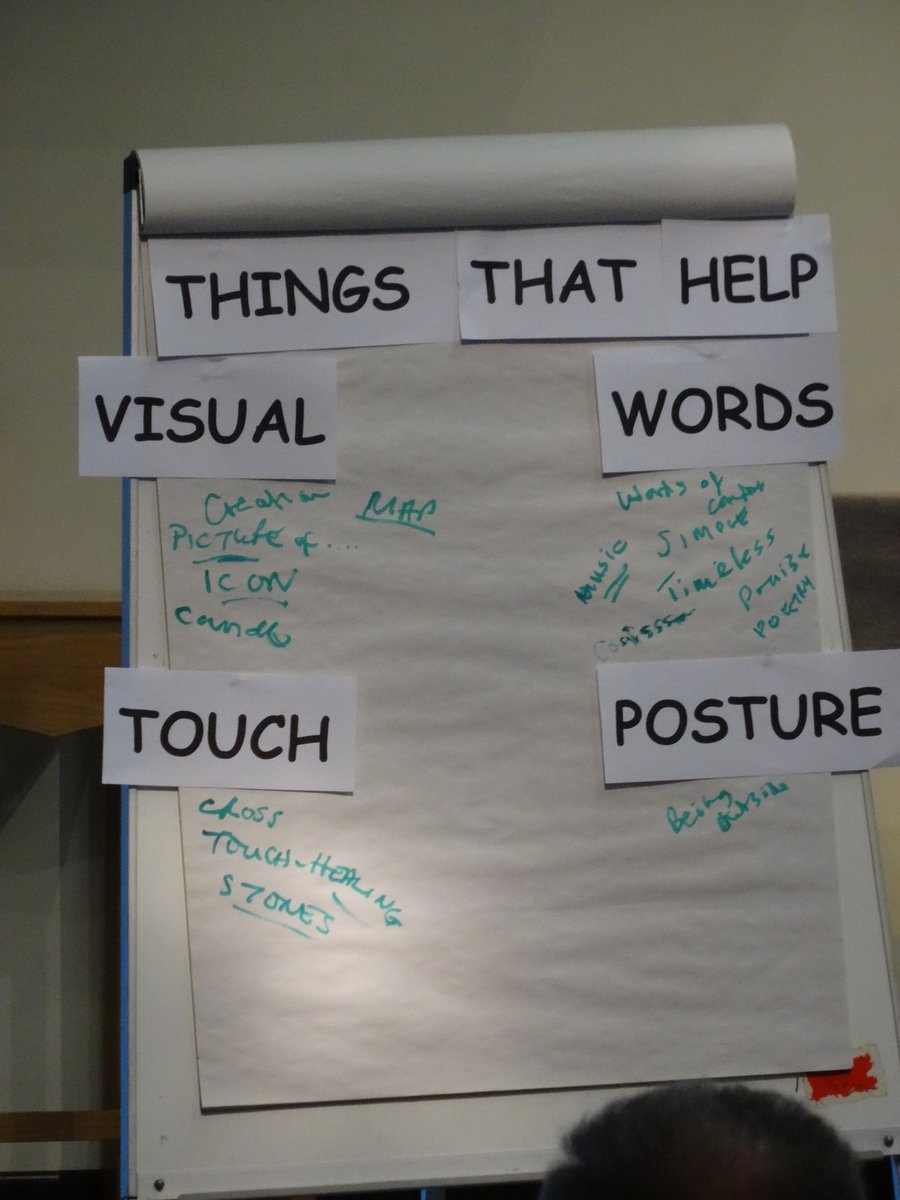 THINGS THAT HELP
VISUAL
Creation
MAP
PICTURE of....
ICON
Candle
WORDS
Words of
comfort
Music
Simple
Timeless
Praise
POETRY
Confession
TOUCH
CROSS
TOUCH-HEALING
STONES
POSTURE
Being
outside